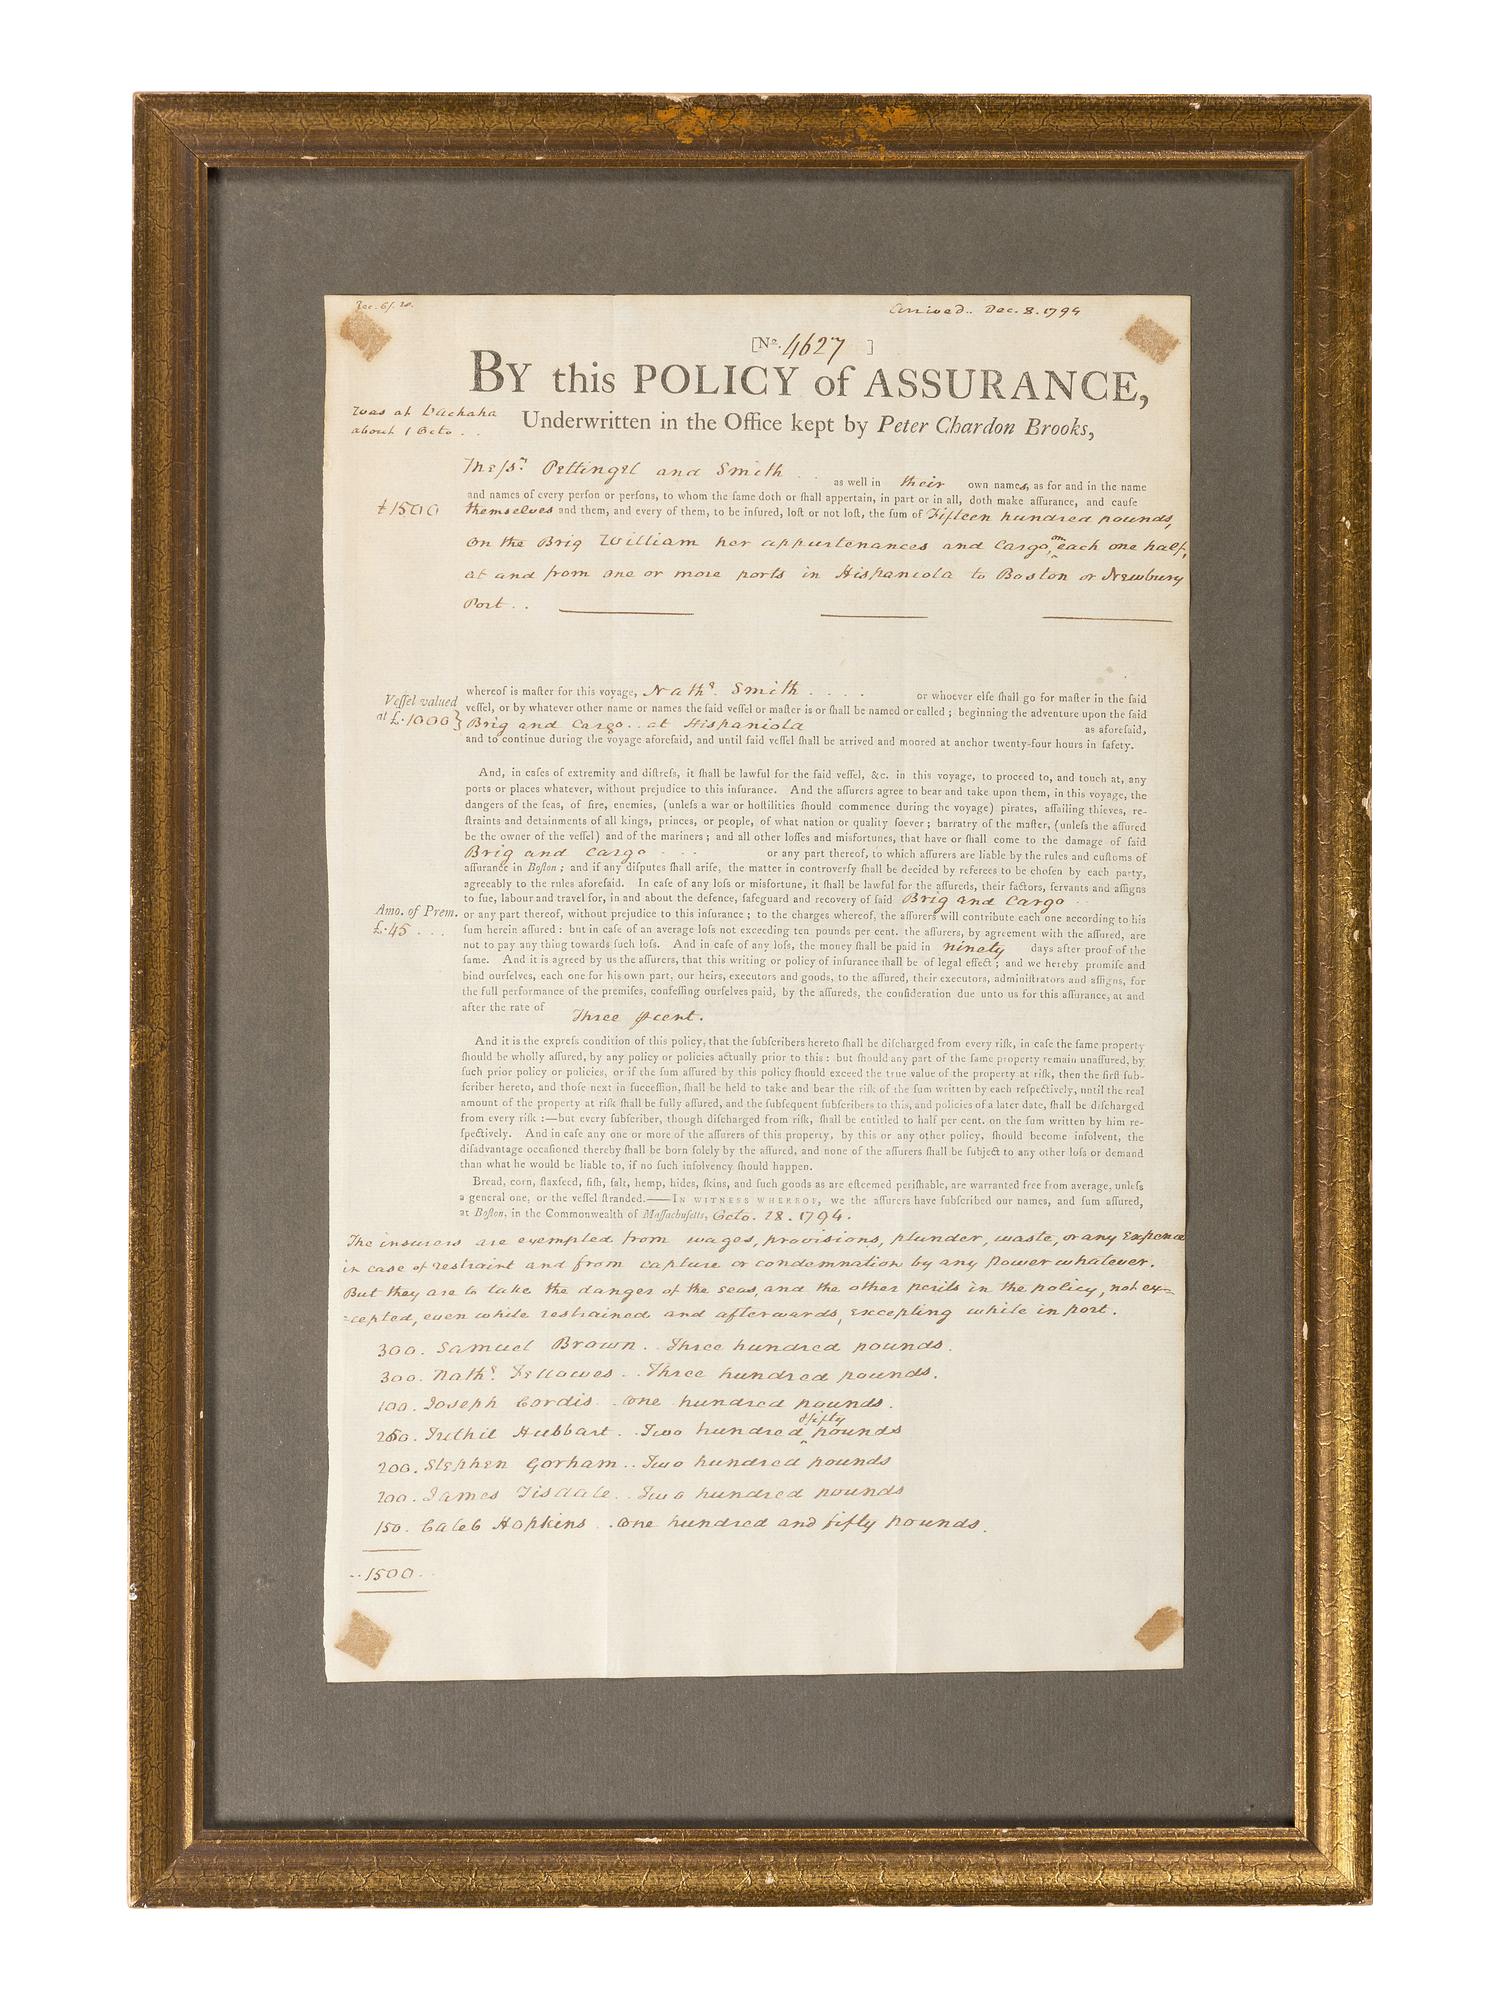 Rec. 6/. 20.
Arrived.. Dec. 8. 1794
[No. 4627 ]
BY this POLICY of ASSURANCE,
Was at
about 1 Octo . .
Underwritten in the Office kept by Peter Chardon Brooks,
Meſsrs. Pettingel and Smith . . as well in their own names, as for and in the name
and names of every perſon or perſons, to whom the ſame doth or ſhall appertain, in part or in all, doth make aſſurance, and cauſe
£1500 themselves and them, and every of them, to be inſured, loſt or not loſt, the ſum of Fifteen hundred pounds,
on the Brig William her appurtenances and Cargo, on each one half,
at and from one or more ports in Hispaniola to Boston or Newbury
Port . .
whereof is maſter for this voyage, Nathl. Smith . . . . or whoever elſe ſhall go for maſter in the ſaid
Veſſel valued
at £.1000}
veſſel, or by whatever other name or names the ſaid veſſel or maſter is or ſhall be named or called ; beginning the adventure upon the ſaid
Brig and Cargo . . at Hispaniola as aforeſaid,
and to continue during the voyage aforeſaid, and until ſaid veſſel ſhall be arrived and moored at anchor twenty-four hours in ſafety.
And, in caſes of extremity and diſtreſs, it ſhall be lawful for the ſaid veſſel, &c. in this voyage, to proceed to, and touch at, any
ports or places whatever, without prejudice to this inſurance. And the aſſurers agree to bear and take upon them, in this voyage, the
dangers of the ſeas, of fire, enemies, (unleſs a war or hoſtilities ſhould commence during the voyage) pirates, aſſailing thieves, re-
ſtraints and detainments of all kings, princes, or people, of what nation or quality ſoever ; barratry of the maſter, (unleſs the aſſured
be the owner of the veſſel) and of the mariners ; and all other loſſes and misfortunes, that have or ſhall come to the damage of ſaid
Brig and Cargo . . . or any part thereof, to which aſſurers are liable by the rules and cuſtoms of
aſſurance in Boſton ; and if any diſputes ſhall ariſe, the matter in controverſy ſhall be decided by referees to be choſen by each party,
agreeably to the rules aforeſaid. In caſe of any loſs or misfortune, it ſhall be lawful for the aſſureds, their factors, ſervants and aſſigns
to ſue, labour and travel for, in and about the defence, ſafeguard and recovery of ſaid Brig and Cargo
Amo. of Prem.
£.45 . . .
or any part thereof, without prejudice to this inſurance ; to the charges whereof, the aſſurers will contribute each one according to his
ſum herein aſſured : but in caſe of an average loſs not exceeding ten pounds per cent. the aſſurers, by agreement with the aſſured, are
not to pay any thing towards ſuch loſs. And in caſe of any loſs, the money ſhall be paid in ninety days after proof of the
ſame. And it is agreed by us the aſſurers, that this writing or policy of inſurance ſhall be of legal effect ; and we hereby promiſe and
bind ourſelves, each one for his own part, our heirs, executors and goods, to the aſſured, their executors, adminiſtrators and aſſigns, for
the full performance of the premiſes, confeſſing ourſelves paid, by the aſſureds, the conſideration due unto us for this aſſurance, at and
after the rate of
Three ⅌cent.
And it is the expreſs condition of this policy, that the ſubſcribers hereto ſhall be diſcharged from every riſk, in caſe the ſame property
ſhould be wholly aſſured, by any policy or policies actually prior to this : but ſhould any part of the ſame property remain unaſſured, by
ſuch prior policy or policies, or if the ſum aſſured by this policy ſhould exceed the true value of the property at riſk, then the firſt ſub-
ſcriber hereto, and thoſe next in ſucceſſion, ſhall be held to take and bear the riſk of the ſum written by each reſpectively, until the real
amount of the property at riſk ſhall be fully aſſured, and the ſubſequent ſubſcribers to this, and policies of a later date, ſhall be diſcharged
from every riſk :—but every ſubſcriber, though diſcharged from riſk, ſhall be entitled to half per cent. on the ſum written by him re-
ſpectively. And in caſe any one or more of the aſſurers of this property, by this or any other policy, ſhould become inſolvent, the
diſadvantage occaſioned thereby ſhall be born ſolely by the aſſured, and none of the aſſurers ſhall be ſubject to any other loſs or demand
than what he would be liable to, if no ſuch inſolvency ſhould happen.
Bread, corn, flaxſeed, fiſh, ſalt, hemp, hides, ſkins, and ſuch goods as are eſteemed periſhable, are warranted free from average, unleſs
a general one, or the veſſel ſtranded.——IN WITNESS WHEREOF, we the aſſurers have ſubſcribed our names, and ſum aſſured,
at Boſton, in the Commonwealth of Maſſachuſetts, Octo. 28. 1794.
The insurers are exempted from wages, provisions, plunder, waste, or any Expence
in case of restraint and from capture or condemnation by any Power whatever.
But they are to take the danger of the seas, and the other perils in the policy, not ex=
=cepted, even while restrained and afterwards, excepting while in port.
300. Samuel Brown . . Three hundred pounds.
300. Nathl. Fellowes . . Three hundred pounds.
100. Joseph Cordis . . One hundred pounds.
250. Tuthil Hubbart . . Two hundred & fifty pounds
200. Stephen Gorham . . Two hundred pounds
200. James Tisdale . . Two hundred pounds
150. Caleb Hopkins . . One hundred and fifty pounds.
. . 1500 . .